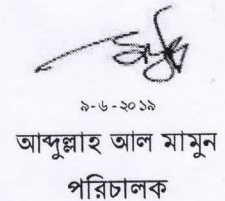 ৯-৬-২০১৯
আব্দুল্লাহ আল মামুন
পরিচালক